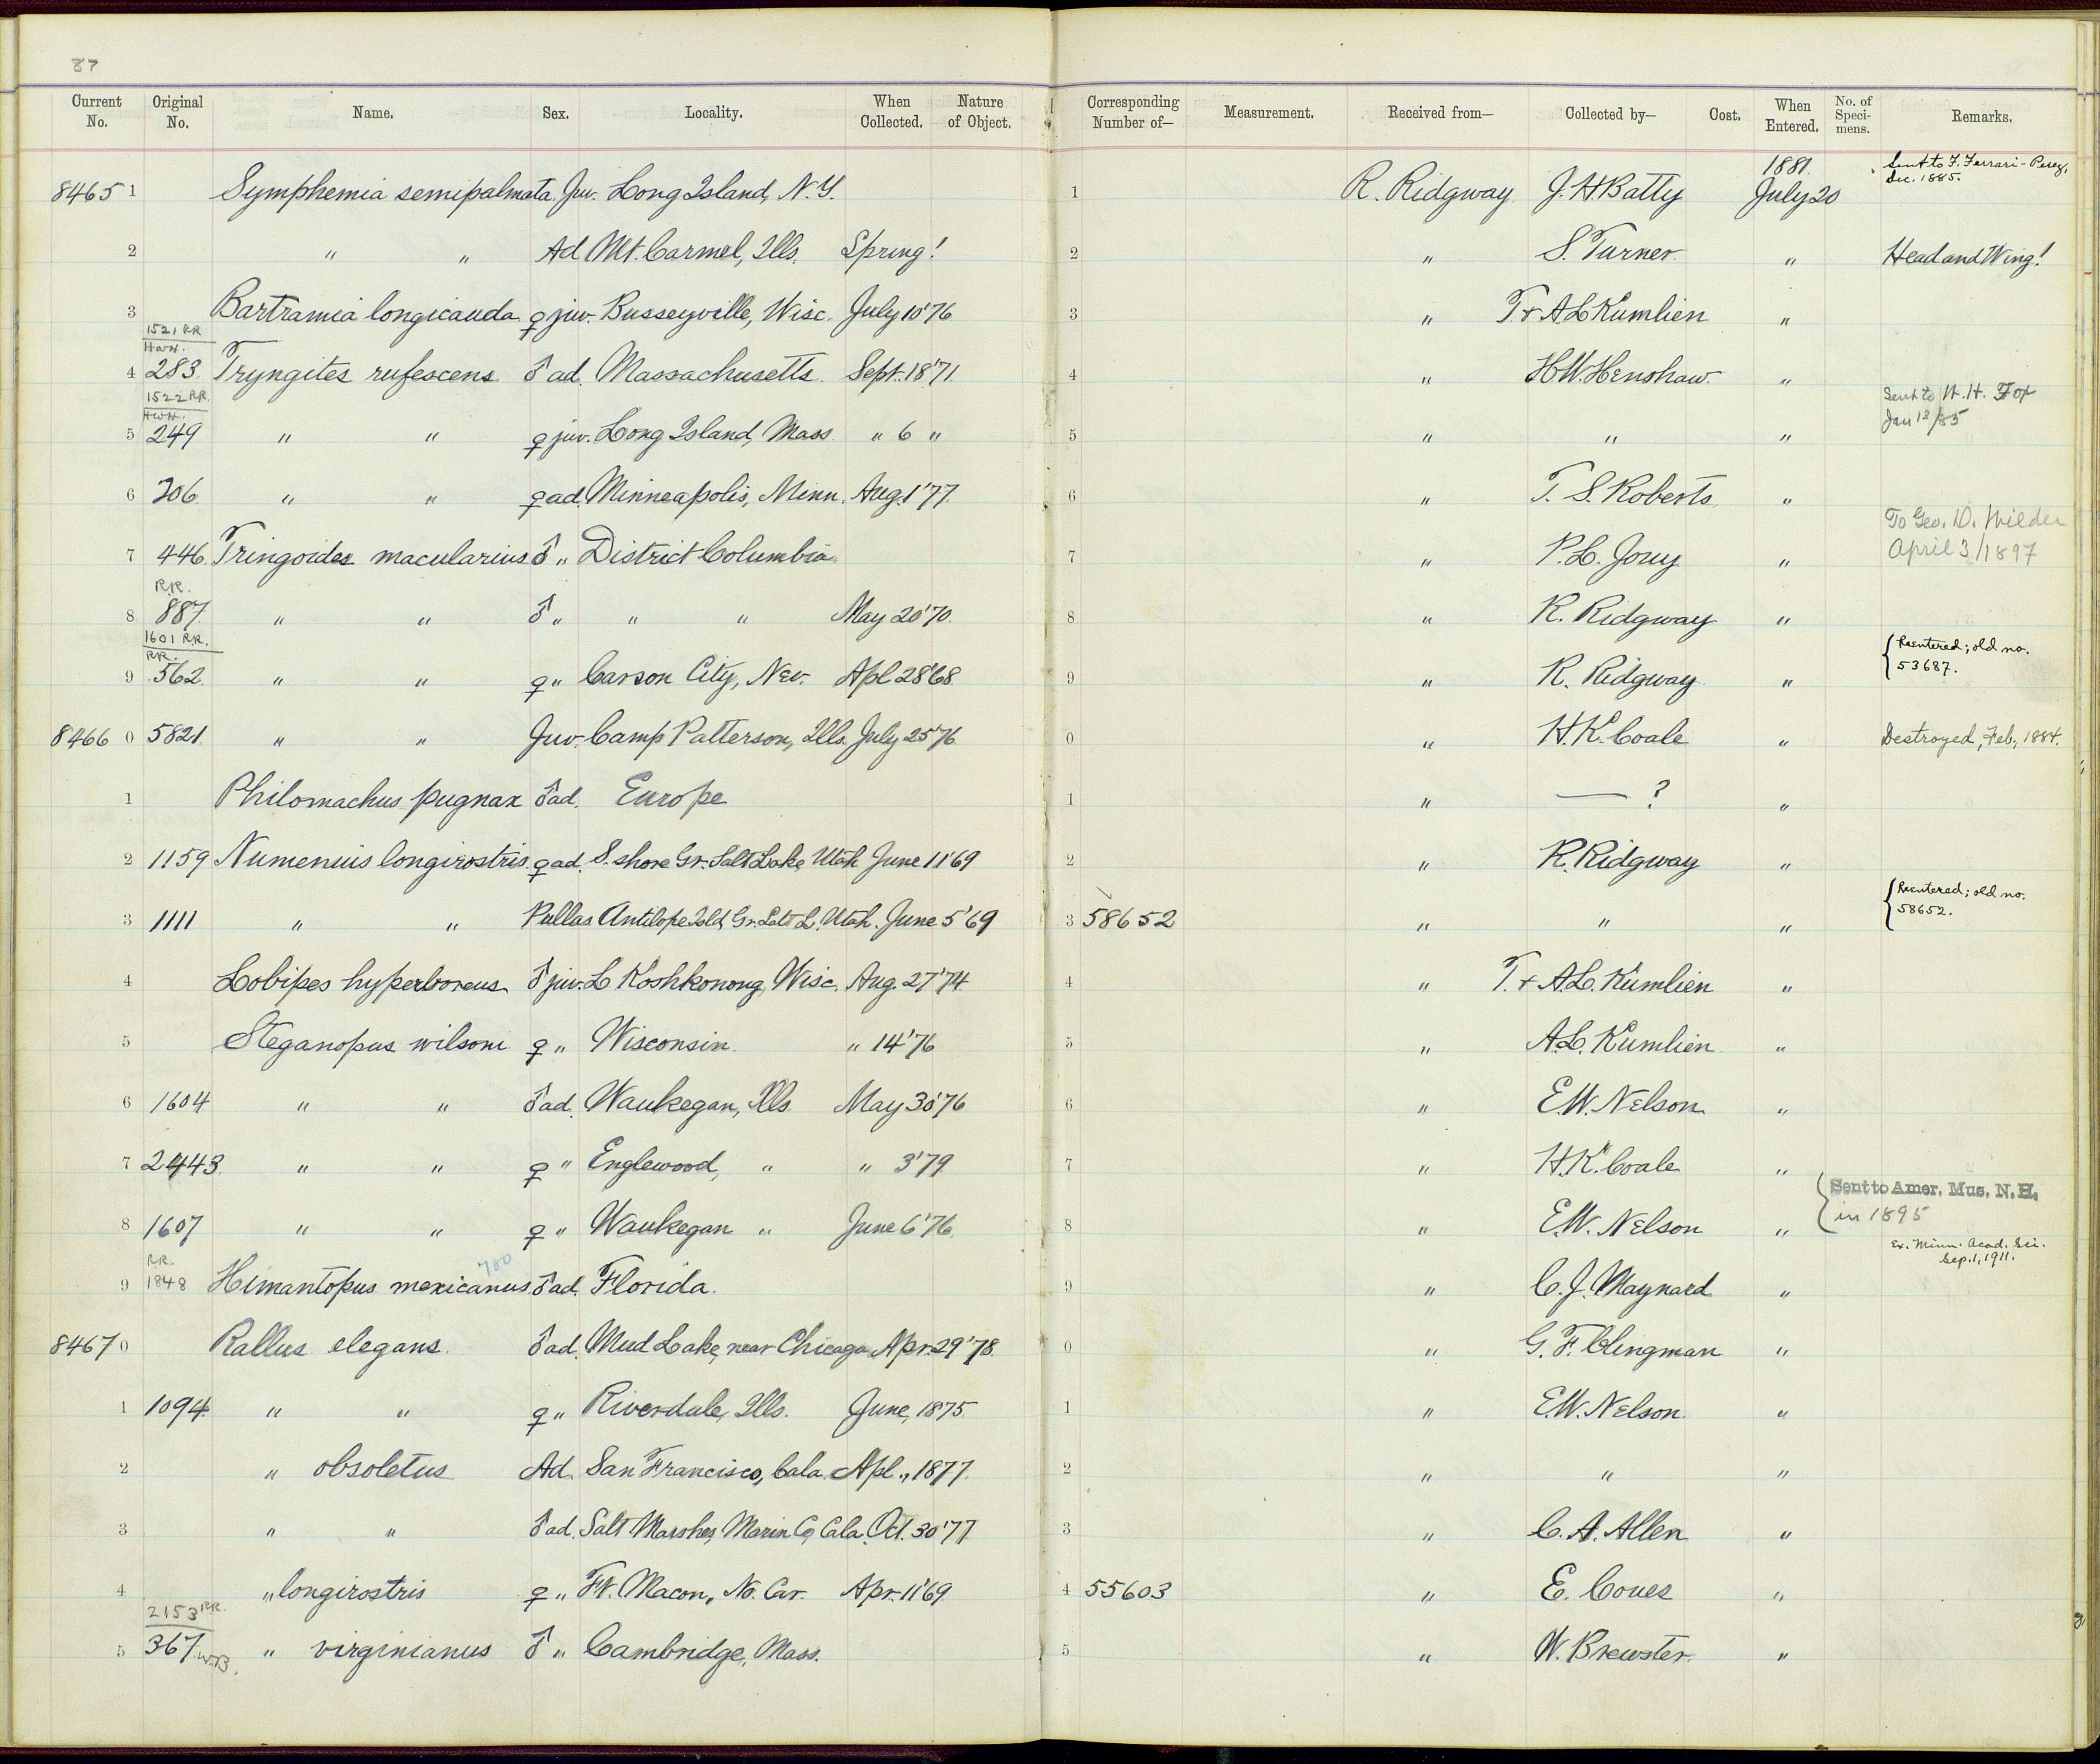 87
Current No. Original No. Name. Sex. Locality. When Collected. Nature of Object. Corresponding Number of— Measurement. Received from— Collected by— Cost. When Entered. No. of Specimens. Remarks.
8465 1 Symphemia semipalmata Juv. Long Island, N.Y. 1 R. Ridgway J. H. Batty 1881. July 20 Sent to F. Ferrari-Perez, Dec. 1885.
2 " " Ad Mt. Carmel, Ills. Spring! 2 " S. Turner " Head and Wing!
3 Bartramia longicauda ♀ juv. Busseyville, Wisc. July 10 '76 3 " T. + A. L. Kumlien "
1521 RR
H.W.H.
4 283 Tryngites rufescens ♂ ad. Massachusetts. Sept. 18 '71. 4 " H. W. Henshaw. "
1522 RR.
H.W.H.
5 249 " " ♀ juv. Long Island, Mass. " 6 " 5 " " " Sent to W. H. Fox Jan 13/85
6 206 " " ♀ ad. Minneapolis, Minn. Aug. 1 '77. 6 " T. S. Roberts. "
7 446. Tringoides macularius ♂ " District Columbia. 7 " P. L. Jouy " To Geo. D. Wilder April 3/1897
R.R.
8 887. " " ♂ " " " May 20 '70. 8 " R. Ridgway "
1601 R.R.
R.R.
9 562. " " ♀ " Carson City, Nev. Apl 28 '68 9 " R. Ridgway " Reentered; old no. 53687.
8466 0 5821. " " Juv. Camp Patterson, Ills. July 25 '76 0 " H. K. Coale " Destroyed, Feb., 1884.
1 Philomachus pugnax ♂ ad. Europe 1 " — ? "
2 1159 Numenius longirostris ♀ ad. S. shore Gr. Salt Lake, Utah June 11 '69 2 " R. Ridgway "
3 1111 " " Pullus Antilope Isld, Gr. Salt L. Utah. June 5 '69 3 58652 " " " Reentered; old no. 58652.
4 Lobipes hyperboreus ♂ juv. L. Koshkonong, Wisc. Aug. 27 '74 4 " T. + A. L. Kumlien "
5 Steganopus wilsoni ♀ " Wisconsin. " 14 '76 5 " A. L. Kumlien "
6 1604 " " ♂ ad. Waukegan, Ills. May 30 '76 6 " E. W. Nelson "
7 2443. " " ♀ " Englewood, " " 3 '79 7 " H. K. Coale "
8 1607 " " ♀ " Waukegan " June 6 '76. 8 " E. W. Nelson " Sent to Amer. Mus. N. H. in 1895
R.R. 700
9 1848 Himantopus mexicanus ♂ ad. Florida. 9 " C. J. Maynard " Ex. Minn. Acad. Sci. Sep. 1, 1911.
8467 0 Rallus elegans. ♂ ad. Mud Lake, near Chicago. Apr. 29 '78. 0 " G. F. Clingman "
1 1094. " " ♀ " Riverdale, Ills. June, 1875 1 " E. W. Nelson. "
2 " obsoletus Ad. San Francisco, Cala. Apl., 1877. 2 " " "
3 " " ♂ ad. Salt Marshes, Marin Co, Cala. Oct. 30 '77. 3 " C. A. Allen "
4 " longirostris ♀ " Ft. Macon, No. Car. Apr. 11 '69. 4 55603 " E. Coues "
2153 R.R.
5 367. W.B. " virginianus ♂ " Cambridge, Mass. 5 " W. Brewster. "